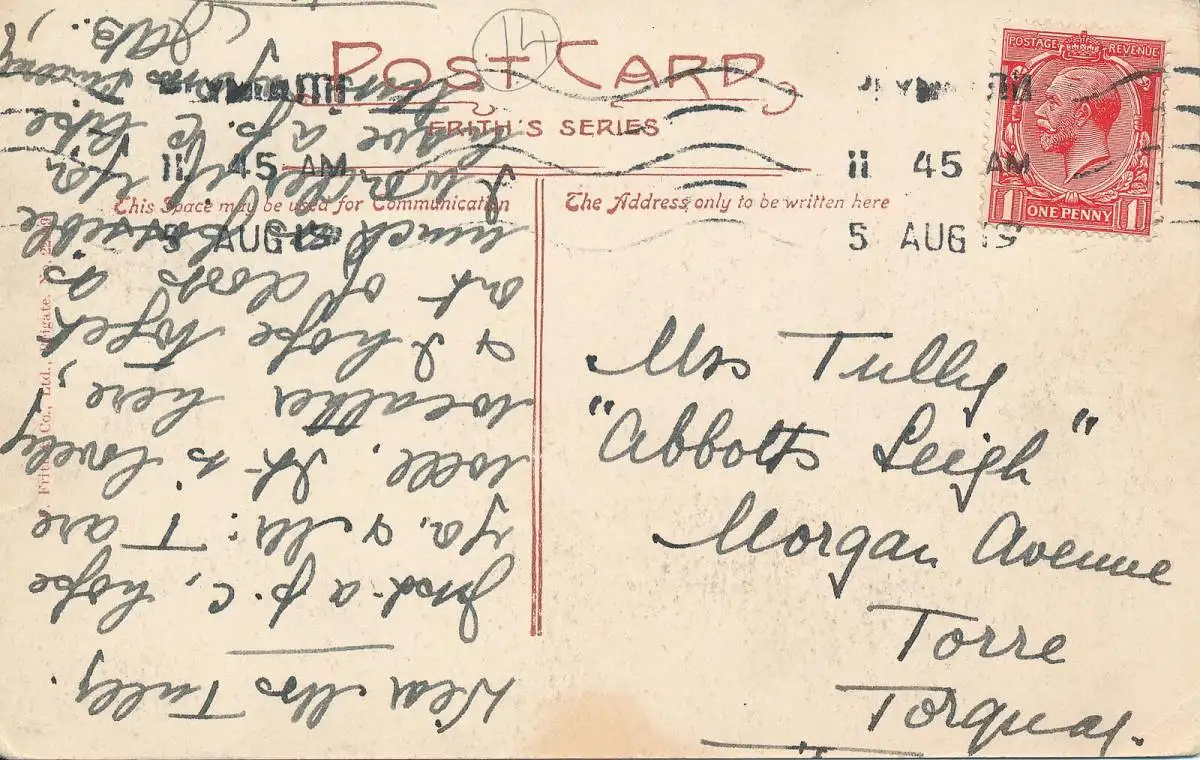 POST CARD
14
FRITH'S SERIES
This Space may be used for Communication
The Address only to be written here
POSTAGE REVENUE
1 ONE PENNY 1
11 45 AM
5 AUG 19
11 45 AM
5 AUG 19
Frith & Co., Ltd., Reigate.
Dear Mrs Tully.
Just a p.c, hope
yo. & Mr: T are
well. It is lovely
weather here,
& I hope to get
out of doors as
much as possible
I wonder if you like
have a p.c
Mrs Tully
"Abbotts Leigh"
Morgan Avenue
Torre
Torquay.